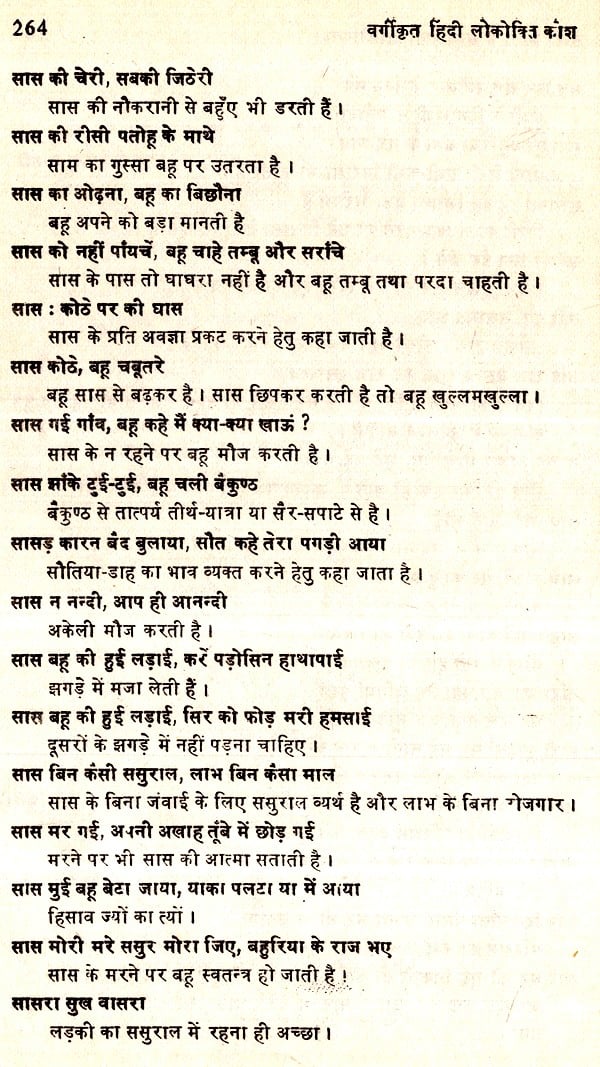 264
वर्गीकृत हिंदी लोकोक्ति कोश
सास की चेरी, सबकी जिठेरी
सास की नौकरानी से बहुँए भी डरती हैं ।
सास की रीसी पतोहू के माथे
साम का गुस्सा बहू पर उतरता है ।
सास का ओढ़ना, बहू का बिछौना
बहू अपने को बड़ा मानती है
सास को नहीं पांयचें, बहू चाहे तम्बू और सरांचे
सास के पास तो घाघरा नहीं है और बहू तम्बू तथा परदा चाहती है ।
सास : कोठे पर की घास
सास के प्रति अवज्ञा प्रकट करने हेतु कहा जाती है ।
सास कोठे, बहू चबूतरे
बहू सास से बढ़कर है । सास छिपकर करती है तो बहू खुल्लमखुल्ला ।
सास गई गांव, बहू कहे मैं क्या-क्या खाऊं ?
सास के न रहने पर बहू मौज करती है ।
सास झांके टुई-टुई, बहू चली बैकुण्ठ
बैकुण्ठ से तात्पर्य तीर्थ-यात्रा या सैर-सपाटे से है ।
सासड़ कारन बैद बुलाया, सौत कहे तेरा पगड़ी आया
सौतिया-डाह का भाव व्यक्त करने हेतु कहा जाता है ।
सास न नन्दी, आप ही आनन्दी
अकेली मौज करती है ।
सास बहू की हुई लड़ाई, करें पड़ोसिन हाथापाई
झगड़े में मजा लेती हैं ।
सास बहू की हुई लड़ाई, सिर को फोड़ मरी हमसाई
दूसरों के झगड़े में नहीं पड़ना चाहिए ।
सास बिन कैसी ससुराल, लाभ बिन कैसा माल
सास के बिना जंवाई के लिए ससुराल व्यर्थ है और लाभ के बिना रोजगार ।
सास मर गई, अपनी अरवाह तूंबे में छोड़ गई
मरने पर भी सास की आत्मा सताती है ।
सास मुई बहू बेटा जाया, याका पलटा या में आया
हिसाव ज्यों का त्यों ।
सास मोरी मरे ससुर मोरा जिए, बहुरिया के राज भए
सास के मरने पर बहू स्वतन्त्र हो जाती है !
सासरा सुख वासरा
लड़की का ससुराल में रहना ही अच्छा ।